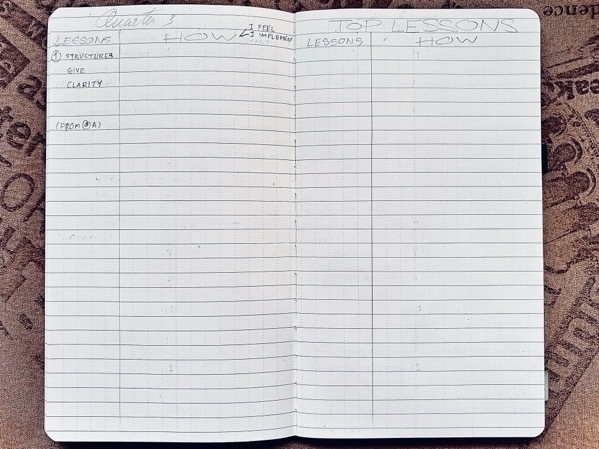 Quarter 3
LESSONS
HOW
I FEEL
I IMPLEMENT
① STRUCTURES
GIVE
CLARITY
(FROM @A)
TOP LESSONS
LESSONS
HOW
dence